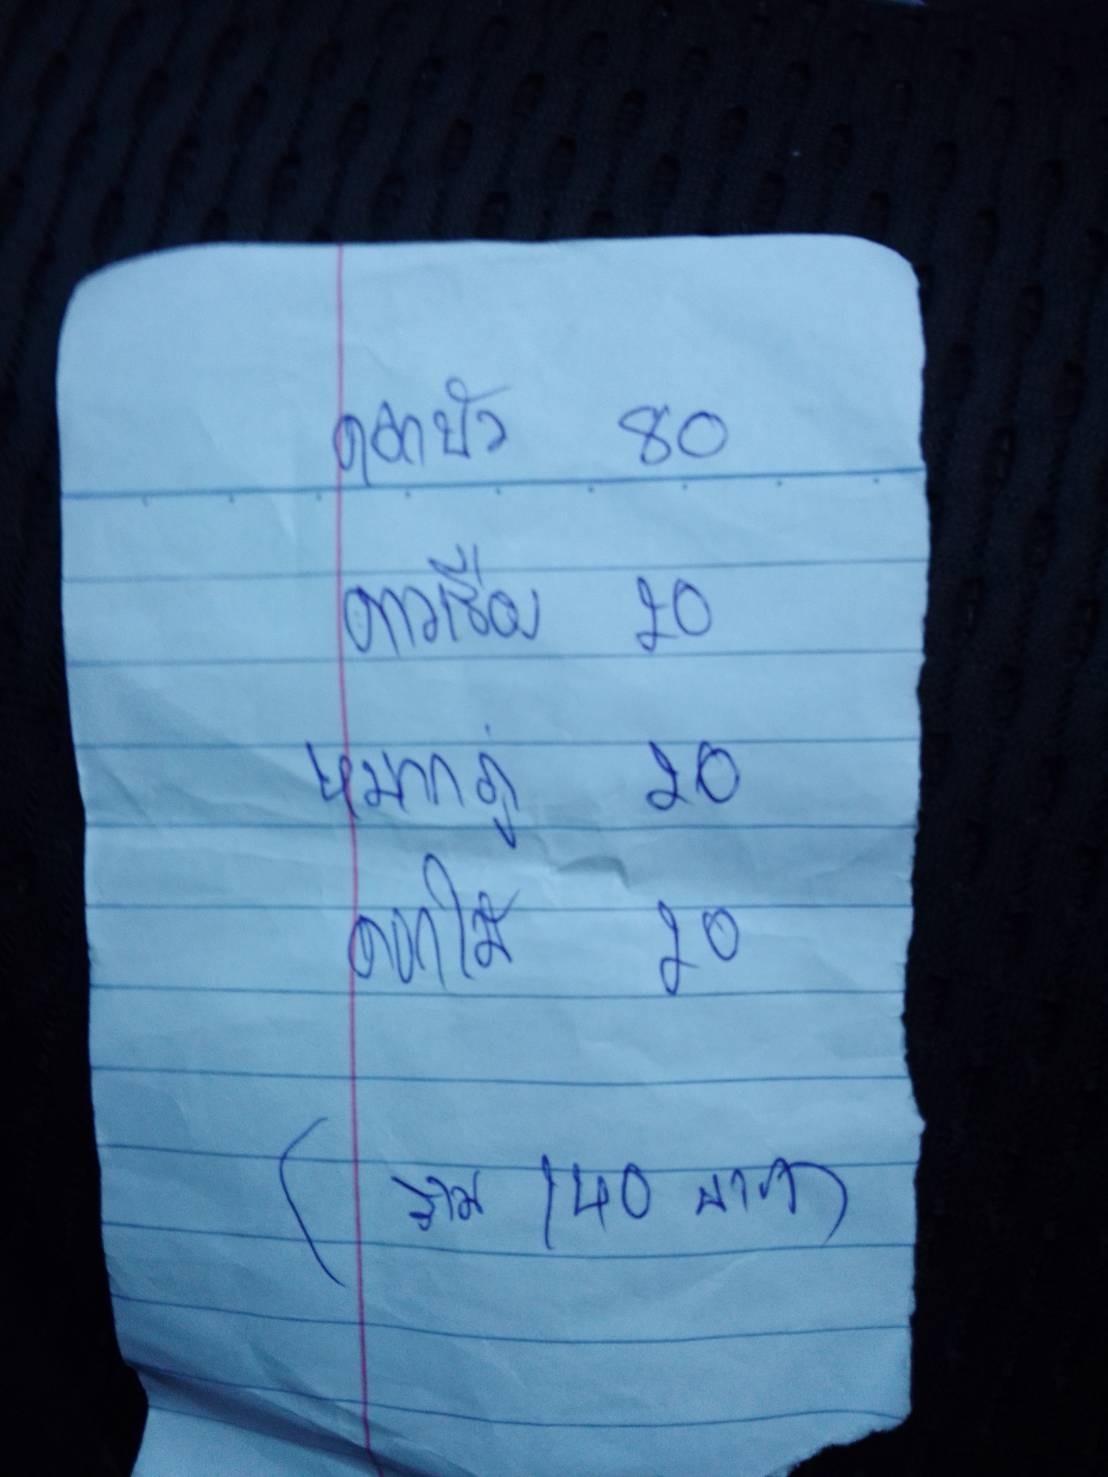 ดอกบัว 80
ดาวเรือง 20
หมากภู่ 20
ดอกไม้ 20
( รวม 140 บาท )